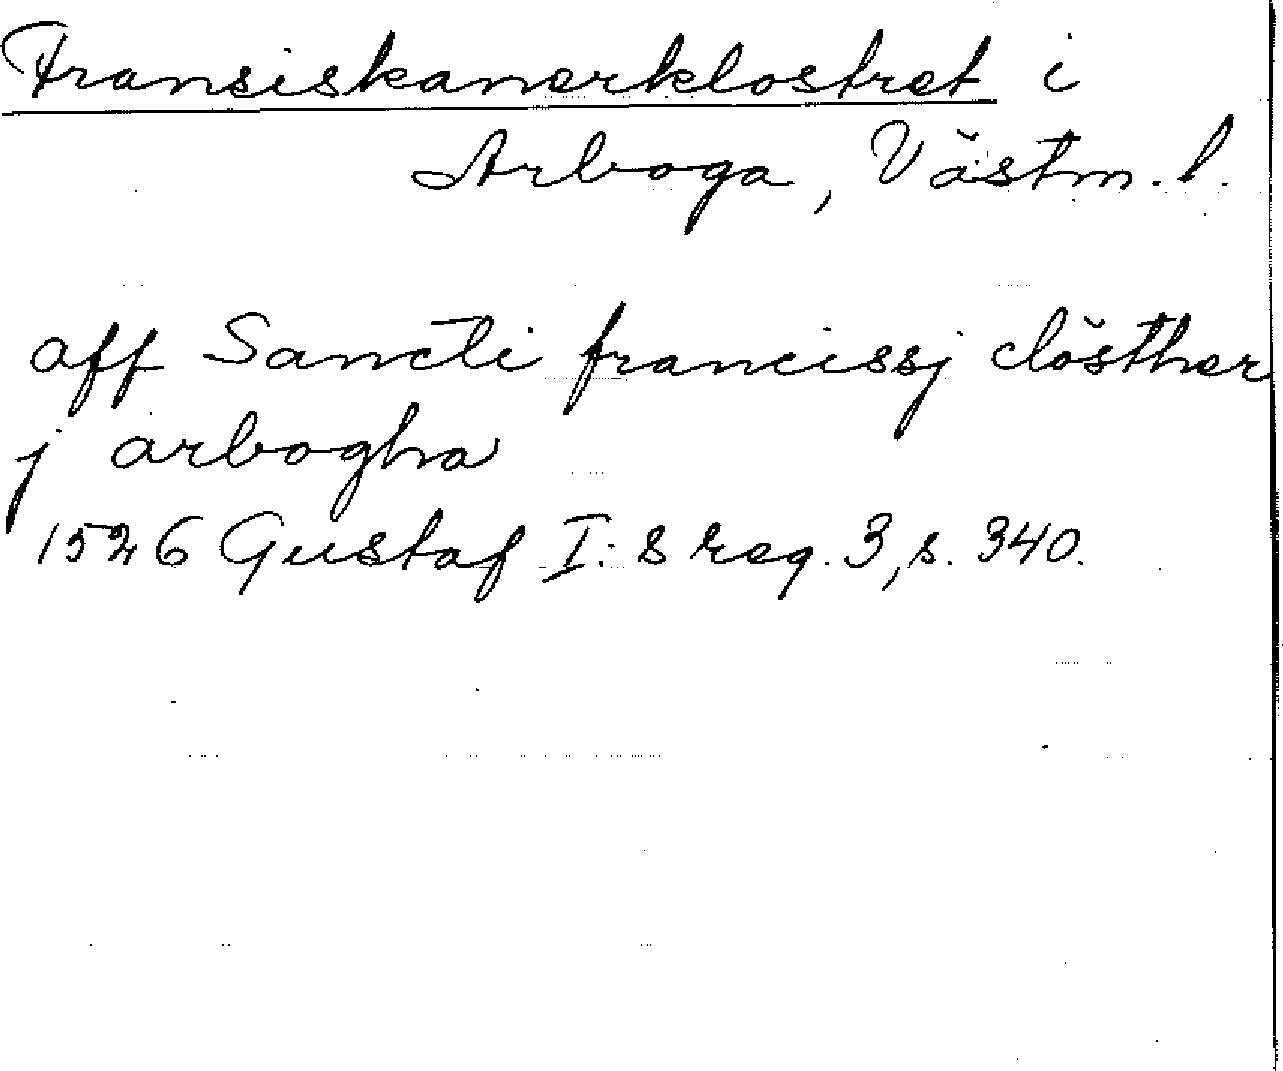 Fransiskanerklostret i
Arboga, Västm. l.
aff Sancti francissj clösther
j arbogha
1526 Gustaf I:s reg. 3, s. 340.